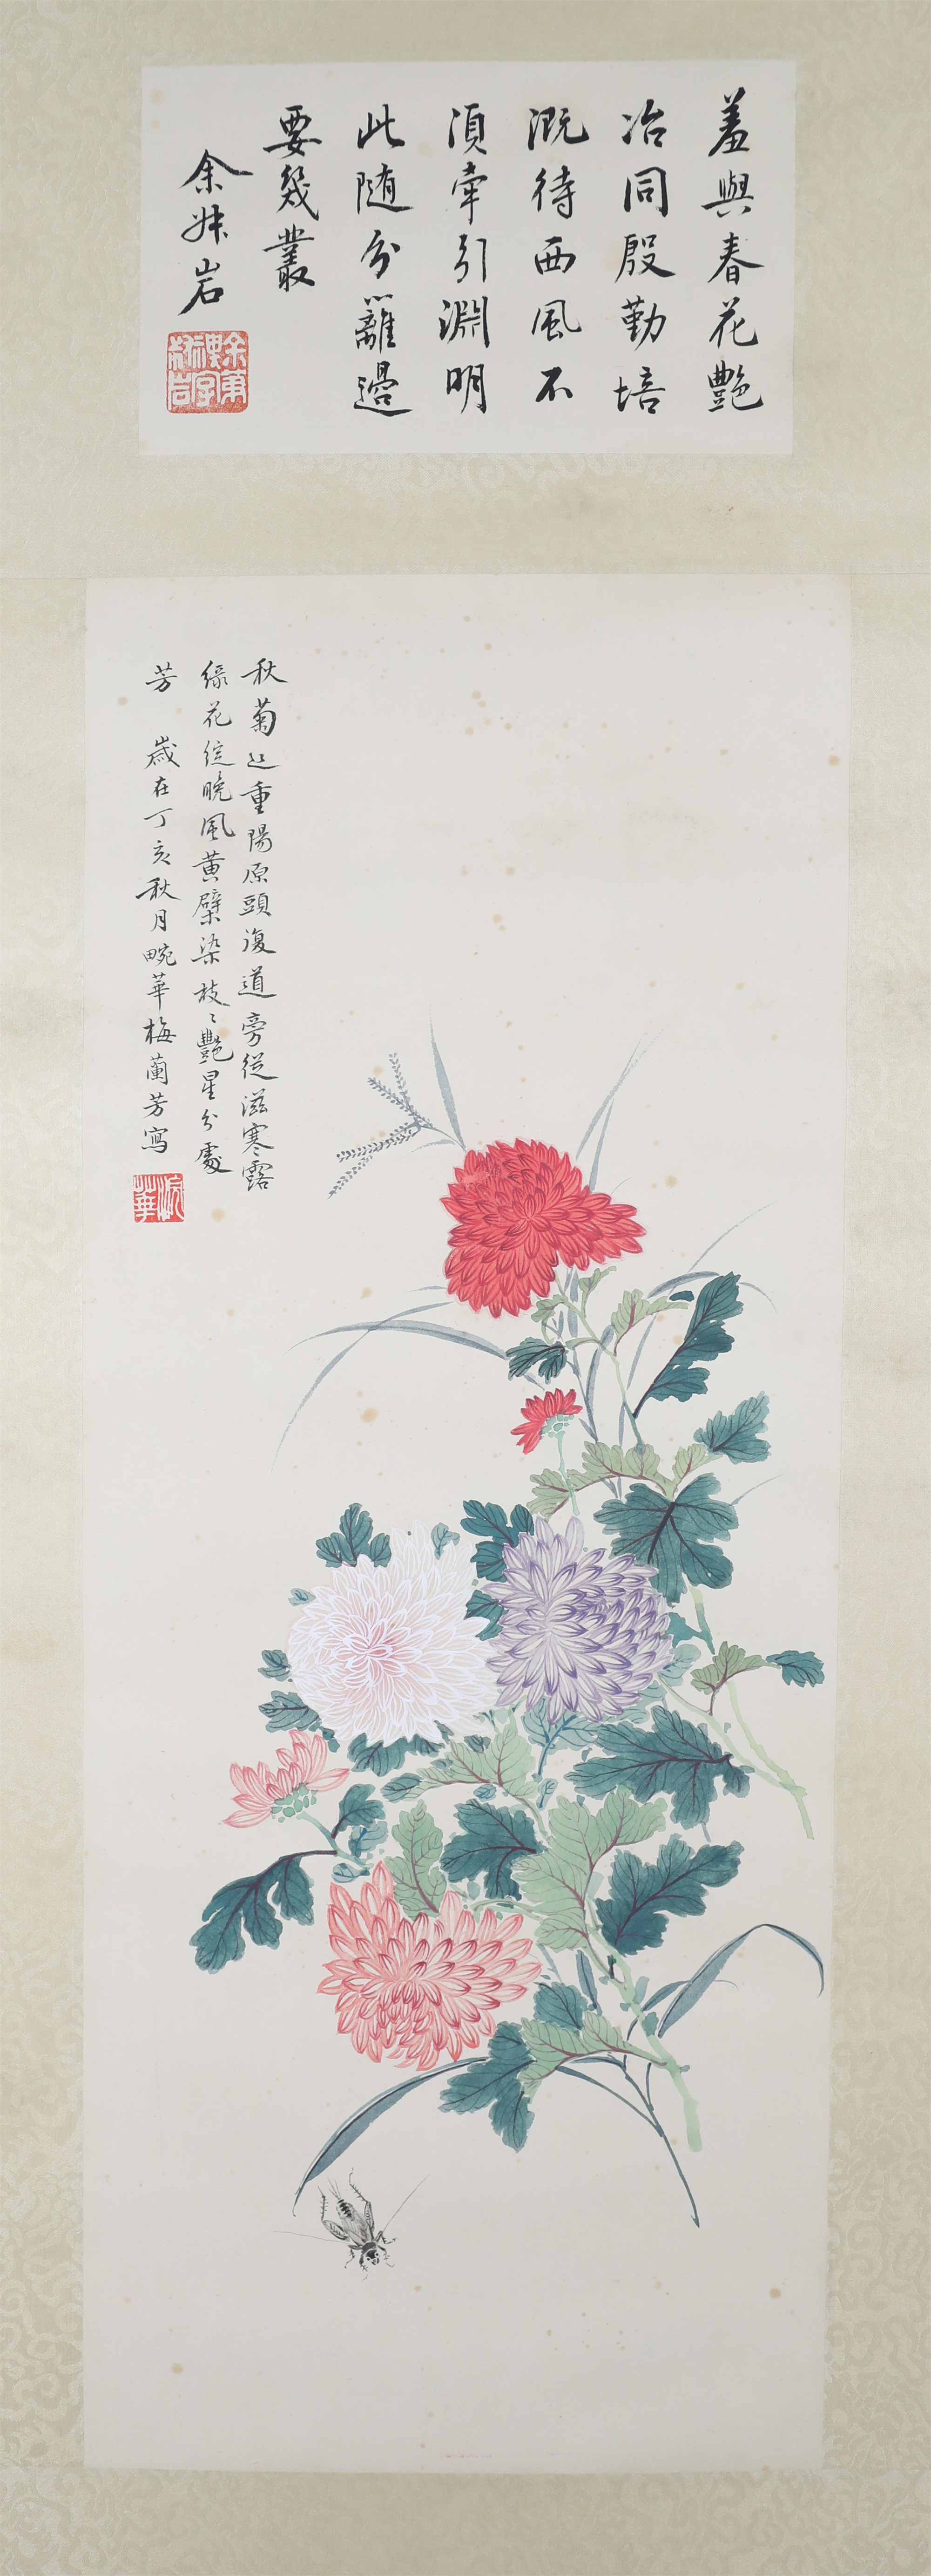 羞與春花艷
冶同殷勤培
溉待西風不
須牽引淵明
此随分籬邊
要幾叢
余姝岩
秋菊近重陽原頭復道旁從滋寒露
綠花綻晚風黃檗染枝〻艷星分處
芳 歲在丁亥秋月畹華梅蘭芳寫
畹華